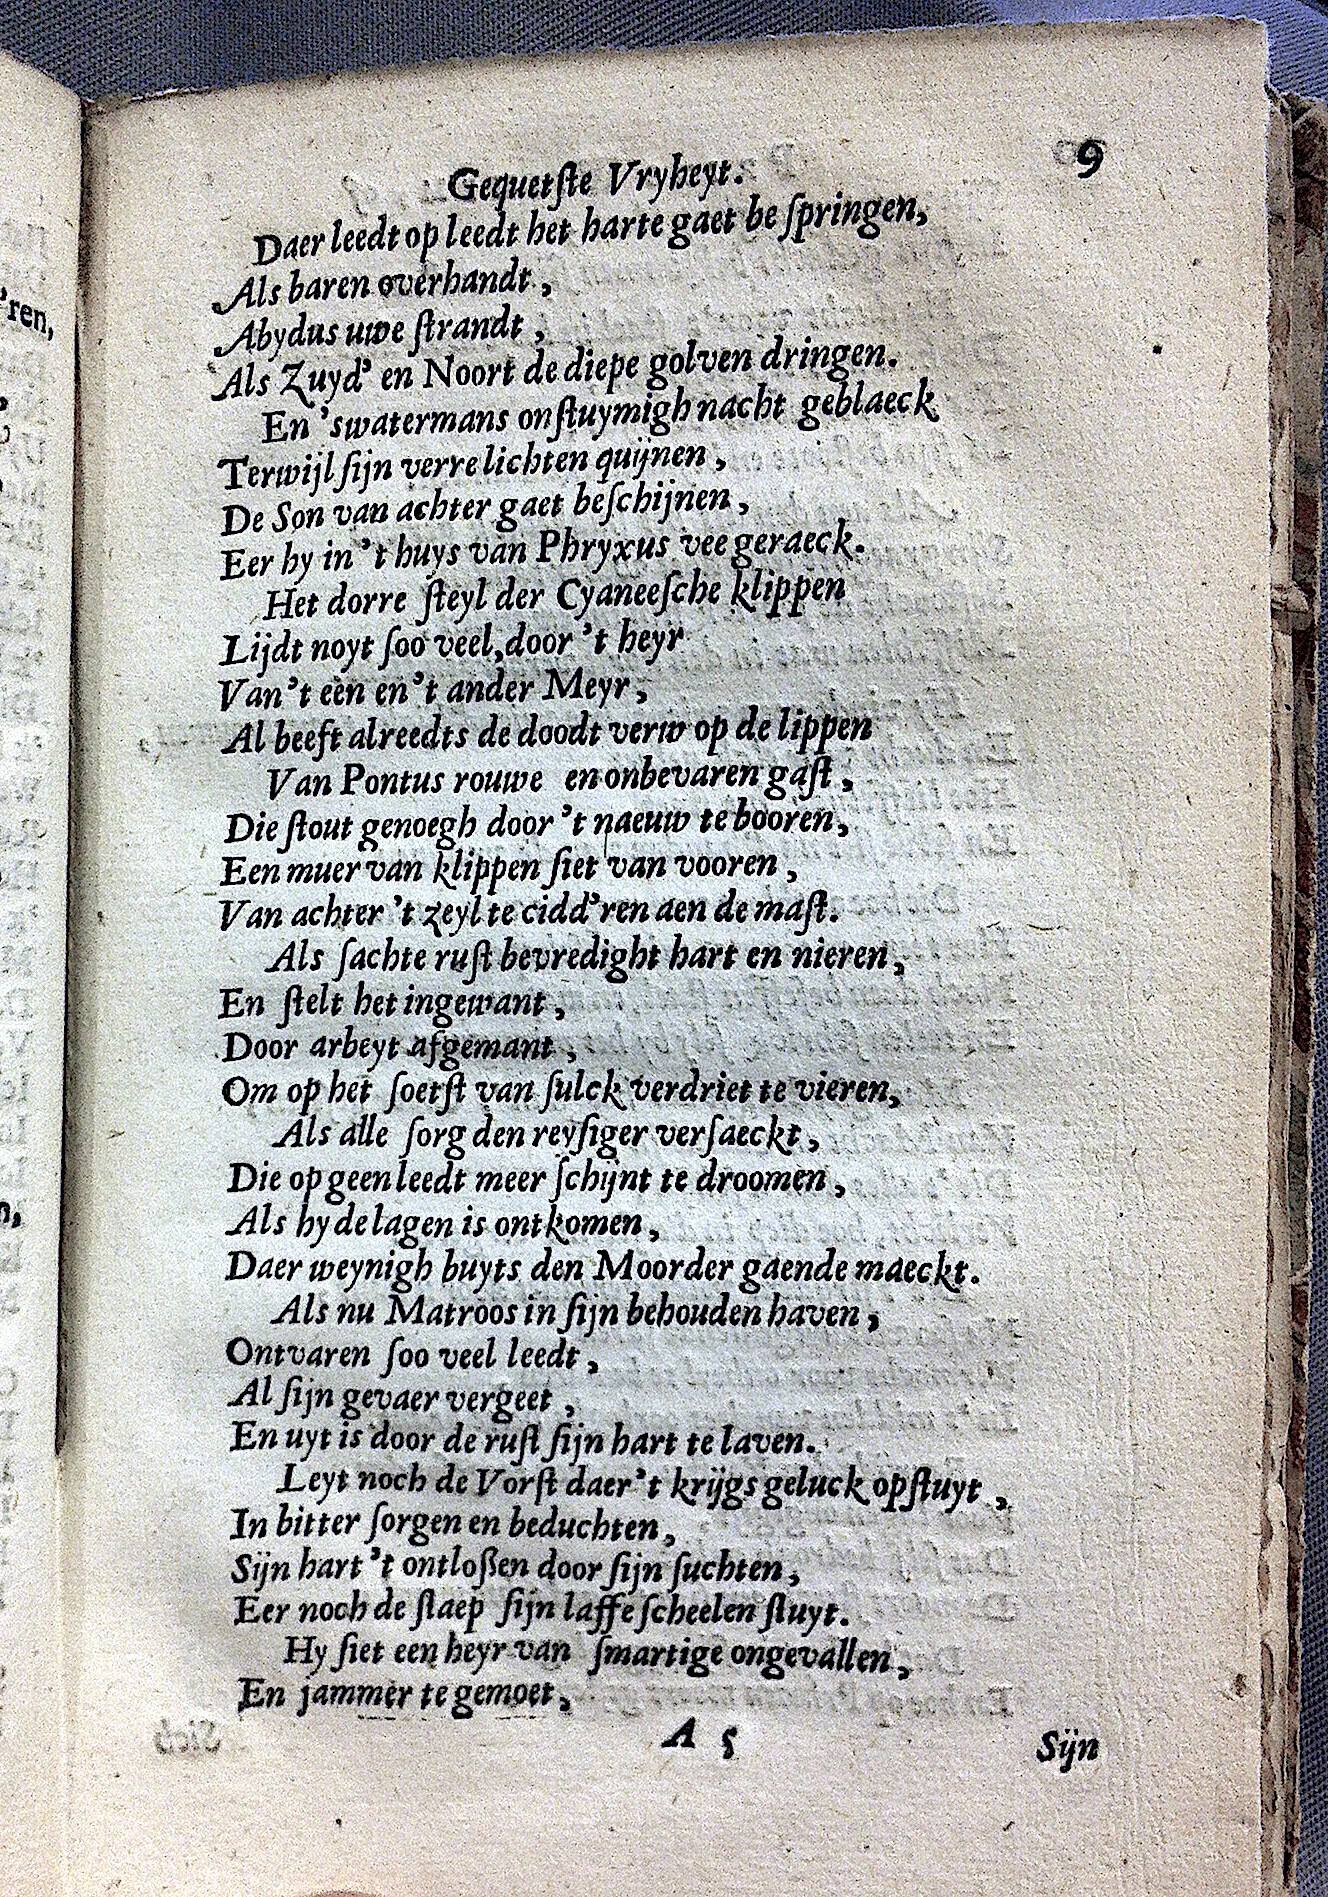 Gequetſte Vryheyt. 9
Daer leedt op leedt het harte gaet be ſpringen,
Als baren overhandt,
Abydus uwe ſtrandt,
Als Zuyd' en Noort de diepe golven dringen.
En 'swatermans onſtuymigh nacht geblaeck
Terwijl ſijn verre lichten quijnen,
De Son van achter gaet beſchijnen,
Eer hy in 't huys van Phryxus vee geraeck.
Het dorre ſteyl der Cyaneeſche klippen
Lijdt noyt ſoo veel, door 't heyr
Van 't een en 't ander Meyr,
Al beeft alreedts de doodt verw op de lippen
Van Pontus rouwe en onbevaren gaſt,
Die ſtout genoegh door 't naeuw te booren,
Een muer van klippen ſiet van vooren,
Van achter 't zeyl te cidd'ren aen de maſt.
Als ſachte ruſt bevredight hart en nieren,
En ſtelt het ingewant,
Door arbeyt afgemant,
Om op het ſoetſt van ſulck verdriet te vieren,
Als alle ſorg den reyſiger verſaeckt,
Die op geen leedt meer ſchijnt te droomen,
Als hy de lagen is ontkomen,
Daer weynigh buyts den Moorder gaende maeckt.
Als nu Matroos in ſijn behouden haven,
Ontvaren ſoo veel leedt,
Al ſijn gevaer vergeet,
En uyt is door de ruſt ſijn hart te laven.
Leyt noch de Vorſt daer 't krijgs geluck opſtuyt,
In bitter ſorgen en beduchten,
Sijn hart 't ontloßen door ſijn ſuchten,
Eer noch de ſlaep ſijn laffe ſcheelen ſluyt.
Hy ſiet een heyr van ſmartige ongevallen,
En jammer te gemoet,
A 5 Sijn
'ren,
n,